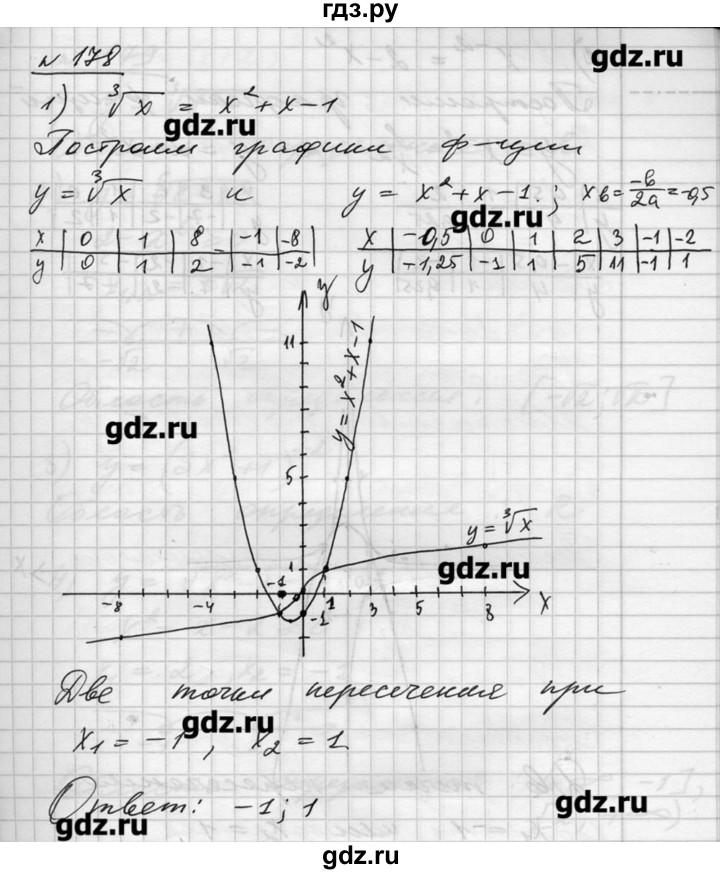 гдз.ру
gdz.ru
№ 178
1) ∛x = x² + x − 1
gdz.ru
Построим графики ф-ции
y = ∛x и y = x² + x − 1. ; xв = −b/2a = −0,5
gdz.ru
x | 0 | 1 | 8 | −1 | −8 |
y | 0 | 1 | 2 | −1 | −2 |
x | −0,5 | 0 | 1 | 2 | 3 | −1 | −2
y | −1,25 | −1 | 1 | 5 | 11 | −1 | 1
y
11
y = x² + x − 1
gdz.ru
5
y = ∛x
1
gdz.ru
−1
−8 −4 1 3 5 8 x
−1
Две точки пересечения при
gdz.ru
x₁ = −1 , x₂ = 1
Ответ: −1; 1
gdz.ru
gdz.ru
gdz.ru